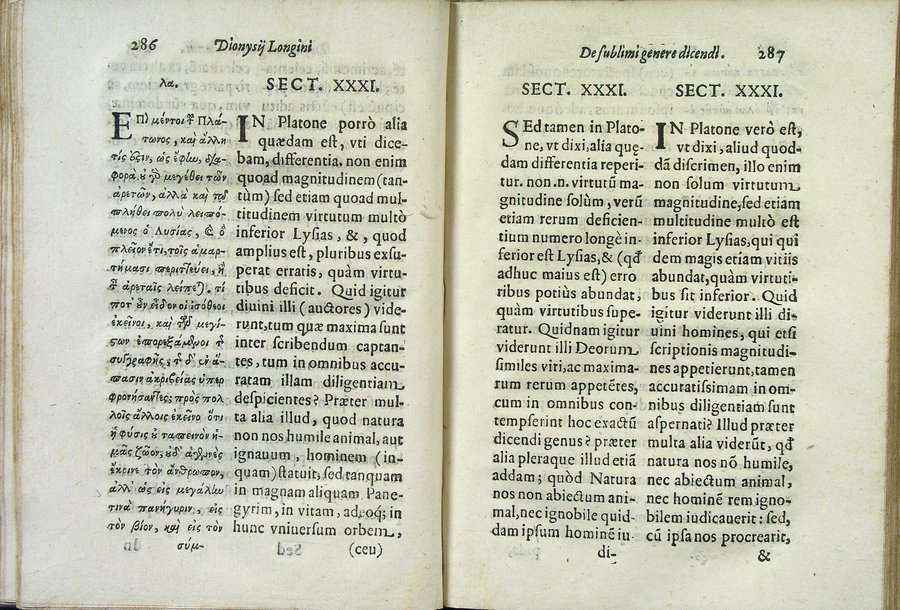 286 Dionysij Longini
λα.
ΕΠὶ μέντοι τοῦ Πλά-
τωνος, καὶ ἄλλη
τίς ἐστιν, ὡς ἔφην, δια-
φορὰ οὐ γὰρ μεγέθει τῶν
ἀρετῶν, ἀλλὰ καὶ τῷ
πλήθει πολὺ λειπό-
μενος ὁ Λυσίας, καὶ ὁ
πλεῖον ἔτι, τοῖς ἁμαρ-
τήμασι περιττεύει, ἢ
ταῖς ἀρεταῖς λείπεται. τί
ποτ' οὖν εἶδον οἱ ἰσόθεοι
ἐκεῖνοι, καὶ τῶν μεγί-
στων ἐπορεξάμενοι τῆς
συγγραφῆς, τῆς δ' ἐν ἅ-
πασιν ἀκριβείας ὑπερ
φρονήσαντες; πρὸς πολ
λοῖς ἄλλοις ἐκεῖνο ὅτι
ἡ φύσις οὐ ταπεινὸν ἡ-
μᾶς ζῶον, οὐδ' ἀγεννὲς
ἔκρινε τὸν ἄνθρωπον,
ἀλλ' ὡς εἰς μεγάλην
τινὰ πανήγυριν, εἰς
τὸν βίον, καὶ εἰς τὸν
σύμ-
SECT. XXXI.
IN Platone porrò alia
quædam est, vti dice-
bam, differentia. non enim
quoad magnitudinem (tan-
tùm) sed etiam quoad mul-
titudinem virtutum multò
inferior Lysias, &, quod
amplius est, pluribus exsu-
perat erratis, quàm virtu-
tibus deficit. Quid igitur
diuini illi (auctores) vide-
runt, tum quæ maxima sunt
inter scribendum captan-
tes, tum in omnibus accu-
ratam illam diligentiam
despicientes? Præter mul-
ta alia illud, quod natura
non nos humile animal, aut
ignauum, hominem (in-
quam) statuit, sed tanquam
in magnam aliquam Pane-
gyrim, in vitam, adeoq; in
hunc vniuersum orbem,
(ceu)
De sublimi genere dicendi. 287
SECT. XXXI.
SEd tamen in Plato-
ne, vt dixi, alia quę-
dam differentia reperi-
tur. non .n. virtutū ma-
gnitudine solùm, verū
etiam rerum deficien-
tium numero longè in-
ferior est Lysias, & (qđ
adhuc maius est) erro
ribus potiùs abundat,
quàm virtutibus supe-
ratur. Quidnam igitur
viderunt illi Deorum
similes viri, ac maxima-
rum rerum appetētes,
cum in omnibus con-
tempserint hoc exactū
dicendi genus? præter
alia pleraque illud etiā
addam; quòd Natura
nos non abiectum ani-
mal, nec ignobile quid-
dam ipsum hominē iu-
di-
SECT. XXXI.
IN Platone verò est,
vt dixi, aliud quod-
dā discrimen, illo enim
non solum virtutum
magnitudine, sed etiam
multitudine multò est
inferior Lysias, qui qui
dem magis etiam vitiis
abundat, quàm virtuti-
bus sit inferior. Quid
igitur viderunt illi di-
uini homines, qui etsi
scriptionis magnitudi-
nes appetierunt, tamen
accuratissimam in om-
nibus diligentiam sunt
aspernati? Illud præter
multa alia viderūt, qđ
natura nos nō humile,
nec abiectum animal,
nec hominē rem igno-
bilem iudicauerit: sed,
cū ipsa nos procrearit,
&